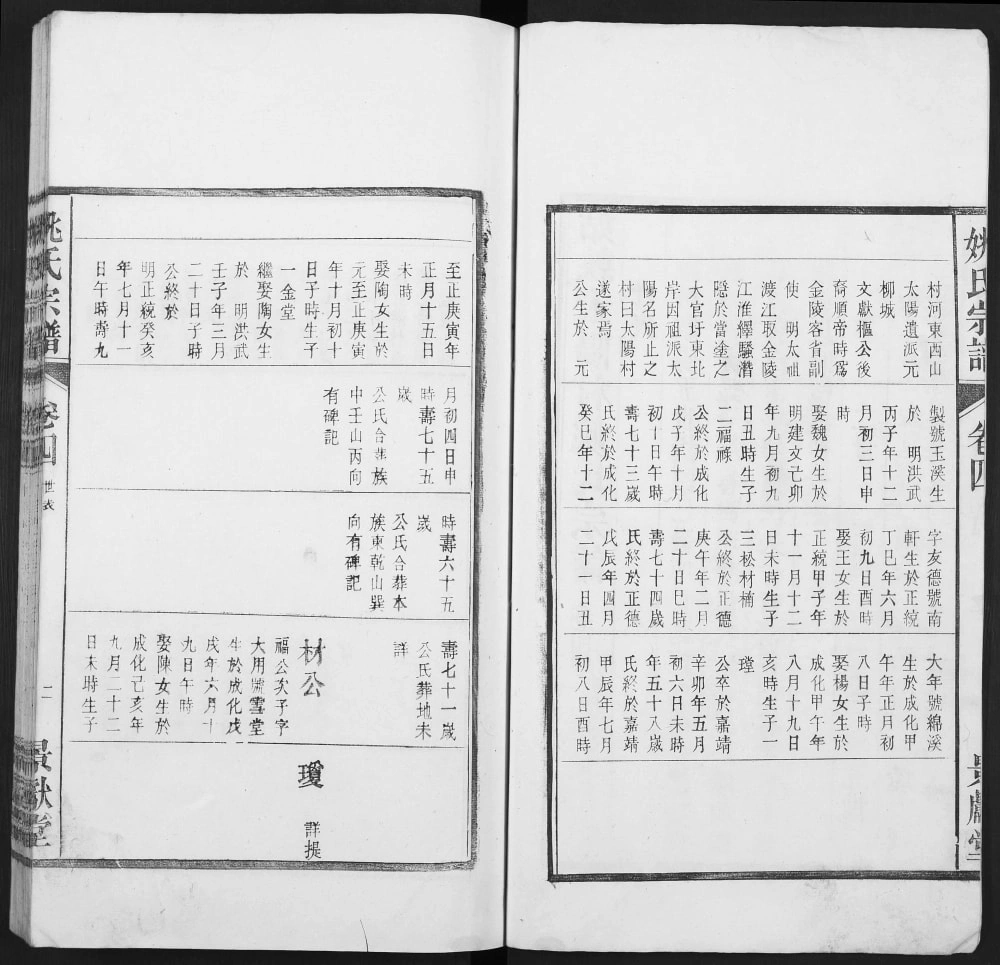 姚氏宗譜
卷四
景獻堂
村河東西山
太陽遺派元
柳城
文獻樞公後
裔順帝時爲
金陵客省副
使 明太祖
渡江取金陵
江淮繹騷潛
隱於當塗之
大官圩東北
岸因祖派太
陽名所止之
村曰太陽村
遂家焉
公生於 元
製號玉溪生
於 明洪武
丙子年十二
月初三日申
時
娶魏女生於
明建文己卯
年九月初九
日丑時生子
二福祿
公終於成化
戊子年十月
初十日午時
壽七十三歲
氏終於成化
癸巳年十二
字友德號南
軒生於正統
丁巳年六月
初九日酉時
娶王女生於
正統甲子年
十一月十二
日未時生子
三松材楠
公終於正德
庚午年二月
二十日巳時
壽七十四歲
氏終於正德
戊辰年四月
二十一日丑
大年號綿溪
生於成化甲
午年正月初
八日子時
娶楊女生於
成化甲午年
八月十九日
亥時生子一
瑩
公卒於嘉靖
辛卯年五月
初六日未時
年五十八歲
氏終於嘉靖
甲辰年七月
初八日酉時
至正庚寅年
正月十五日
未時
娶陶女生於
元至正庚寅
年十月初十
日子時生子
一金堂
繼娶陶女生
於 明洪武
壬子年三月
二十日子時
公終於
明正統癸亥
年七月十一
日午時壽九
月初四日申
時壽七十五
歲
公氏合葬族
中壬山丙向
有碑記
時壽六十五
歲
公氏合葬本
族東乾山巽
向有碑記
壽七十一歲
公氏葬地未
詳
材公
福公次子字
大用號雪堂
生於成化戊
戌年六月十
九日午時
娶陳女生於
成化己亥年
九月二十二
日未時生子
瓊 詳提
姚氏宗譜
卷四
世表
二
景獻堂